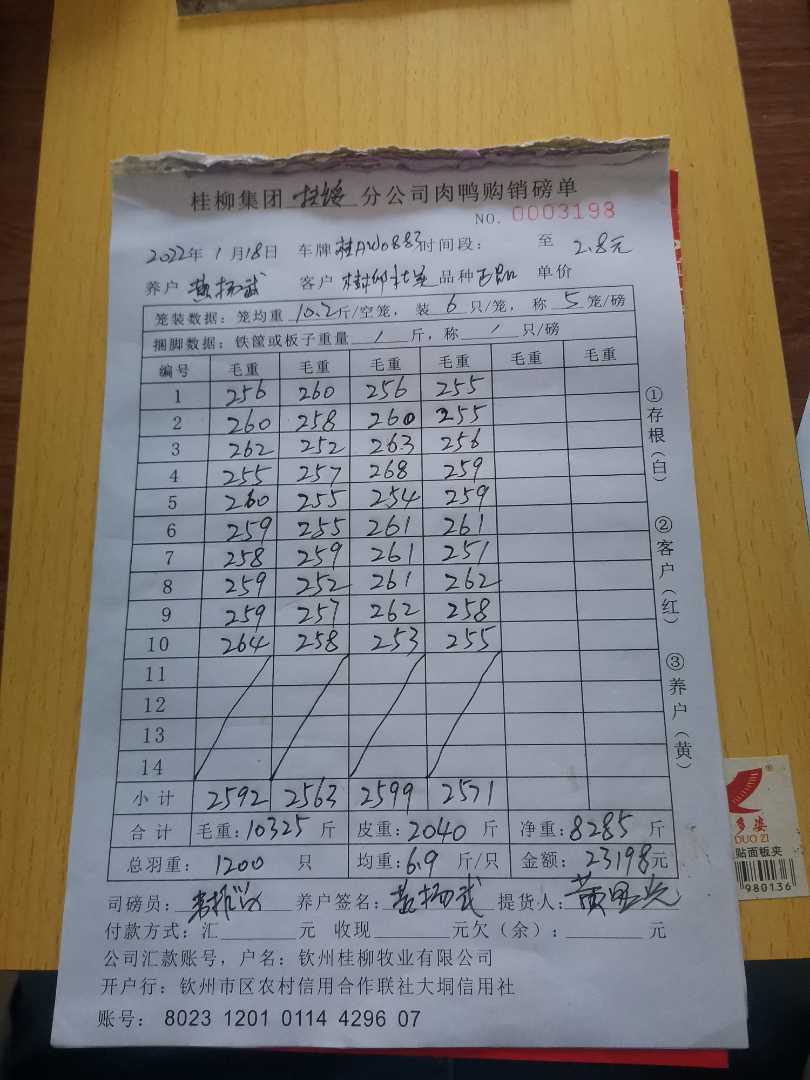 桂柳集团 扶绥 分公司肉鸭购销磅单
NO. 0003198
2022年 1月18日 车牌 桂AW0883 时间段: 至 2.8元
养户 黄扬武 客户 品种 单价
笼装数据: 笼均重 10.2 斤/空笼, 装 6 只/笼, 称 5 笼/磅
捆脚数据: 铁篮或板子重量 / 斤, 称 / 只/磅
编号 毛重 毛重 毛重 毛重 毛重 毛重
1 256 260 256 255
2 260 258 260 255
3 262 252 263 256
4 255 257 268 259
5 260 255 254 259
6 259 255 261 261
7 258 259 261 251
8 259 252 261 262
9 259 257 262 258
10 264 258 253 255
11
12
13
14
小计 2592 2563 2599 2571
合计 毛重: 10325 斤 皮重: 2040 斤 净重: 8285 斤
总羽重: 1200 只 均重: 6.9 斤/只 金额: 23198元
司磅员: 养户签名: 黄扬武 提货人:
付款方式: 汇 元 收现 元欠(余): 元
公司汇款账号, 户名: 钦州桂柳牧业有限公司
开户行: 钦州市区农村信用合作联社大垌信用社
账号: 8023 1201 0114 4296 07
①存根(白)
②客户(红)
③养户(黄)
®
多姿
DUO ZI
贴面板夹
980136